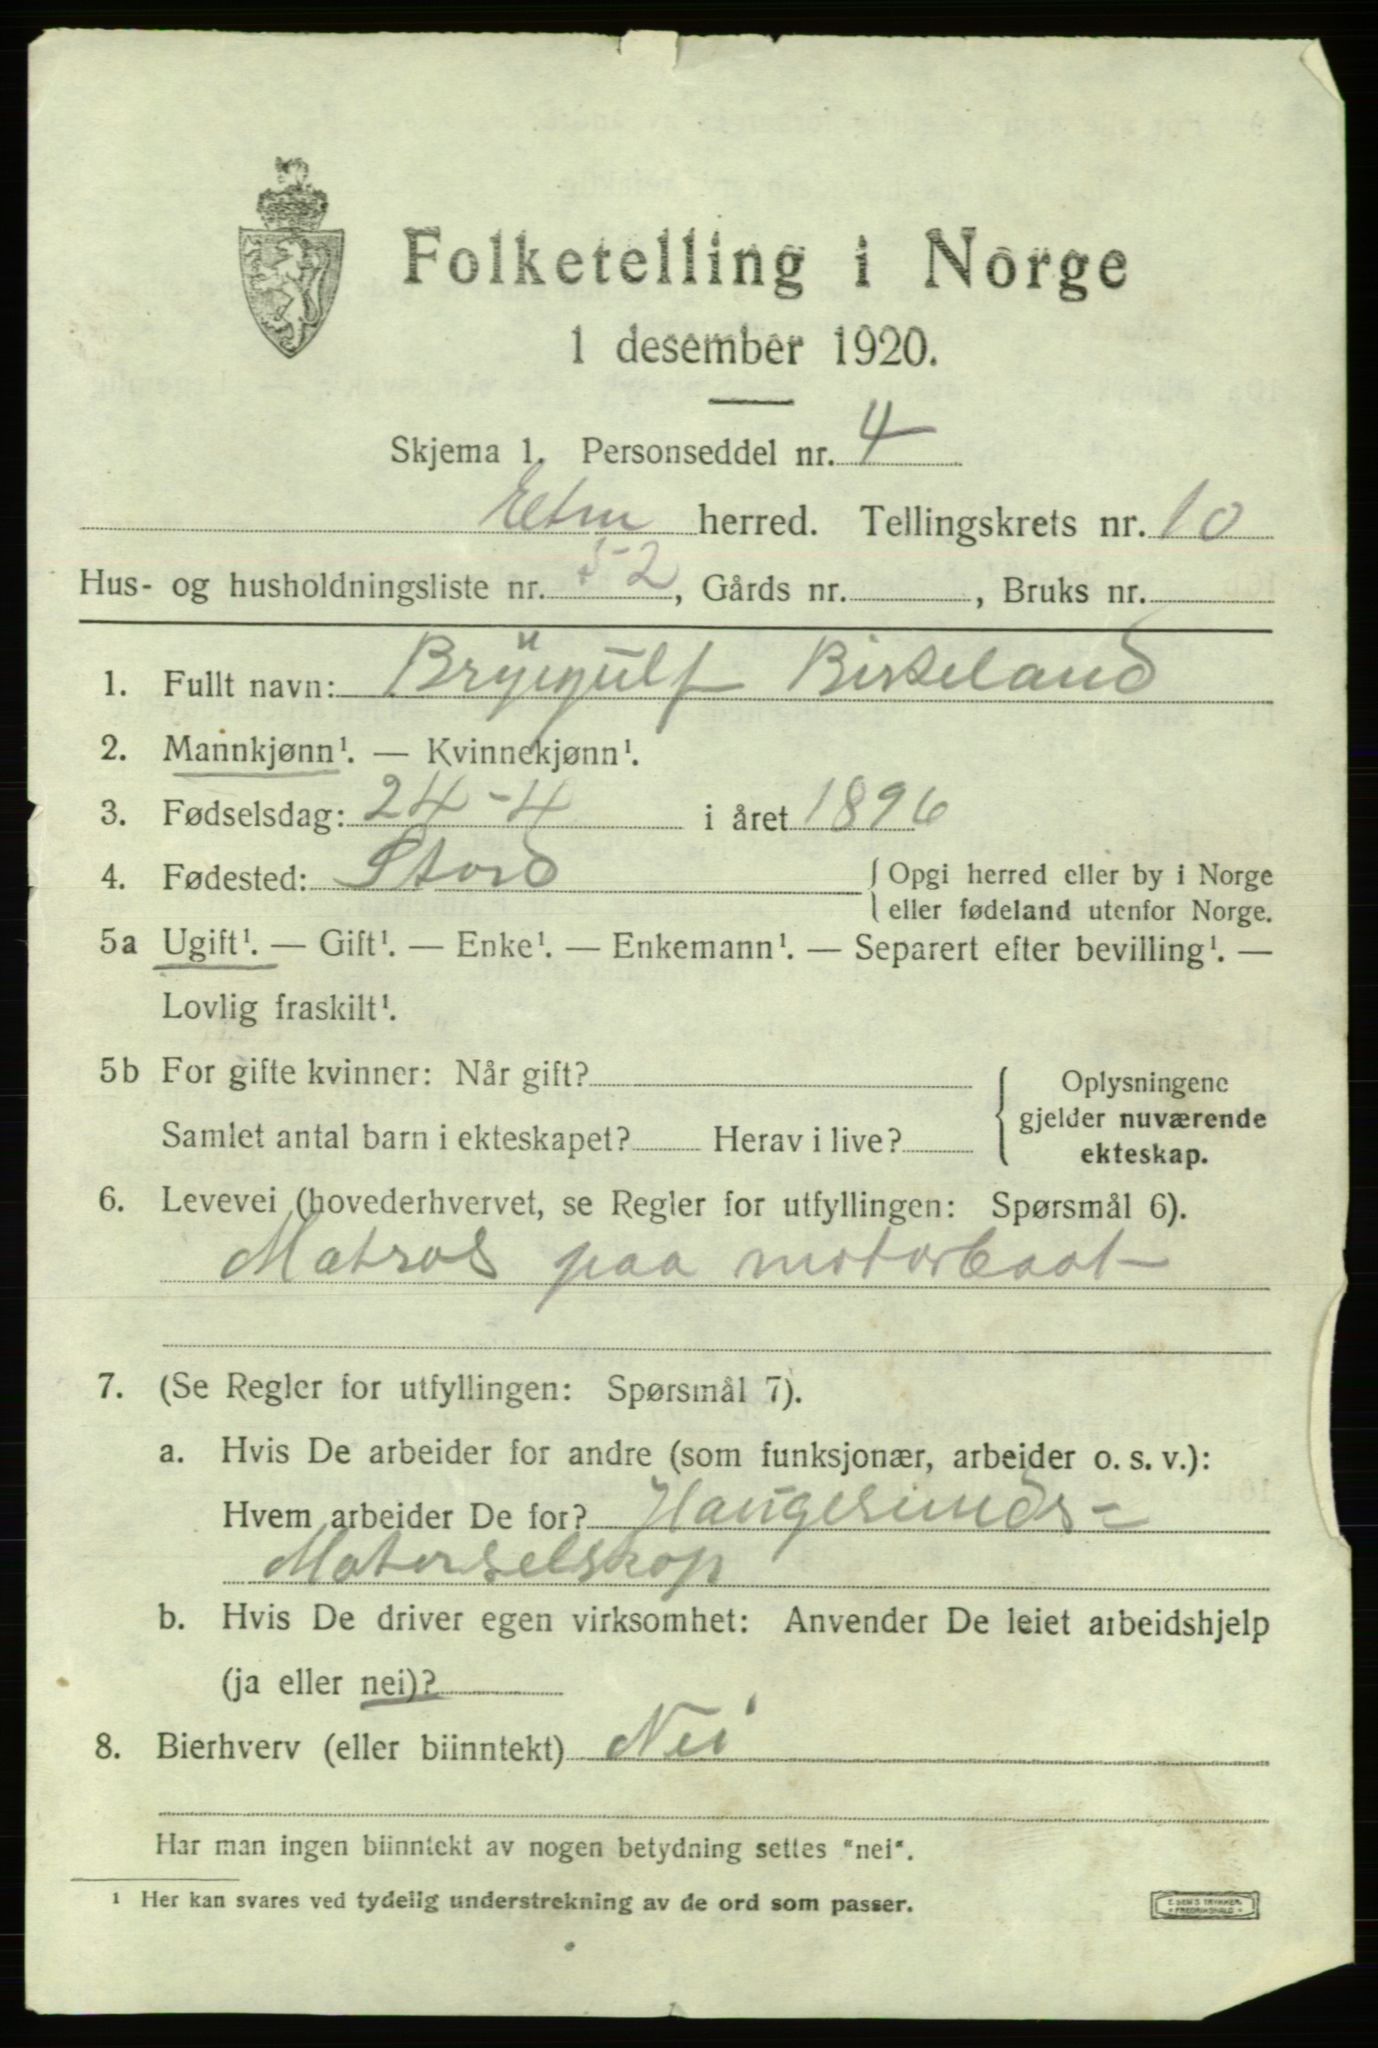 Folketelling i Norge
1 desember 1920.
Skjema 1. Personseddel nr. 4
Etne herred. Tellingskrets nr. 10
Hus- og husholdningsliste nr. 52, Gårds nr. , Bruks nr.
1. Fullt navn: Brynjulf Birkeland
2. Mannkjønn¹. — Kvinnekjønn¹.
3. Fødselsdag: 24-4 i året 1896
4. Fødested: Stord { Opgi herred eller by i Norge
eller fødeland utenfor Norge.
5a Ugift¹. — Gift¹. — Enke¹. — Enkemann¹. — Separert efter bevilling¹. —
Lovlig fraskilt¹.
5b For gifte kvinner: Når gift?
Samlet antal barn i ekteskapet? Herav i live?
{ Oplysningene
gjelder nuværende
ekteskap.
6. Levevei (hovederhvervet, se Regler for utfyllingen: Spørsmål 6).
Matros paa motorbaat
7. (Se Regler for utfyllingen: Spørsmål 7).
a. Hvis De arbeider for andre (som funksjonær, arbeider o. s. v.):
Hvem arbeider De for? Haugesunds-
Motorselskap
b. Hvis De driver egen virksomhet: Anvender De leiet arbeidshjelp
(ja eller nei)?
8. Bierhverv (eller biinntekt) Nei
Har man ingen biinntekt av nogen betydning settes "nei".
¹ Her kan svares ved tydelig understrekning av de ord som passer.